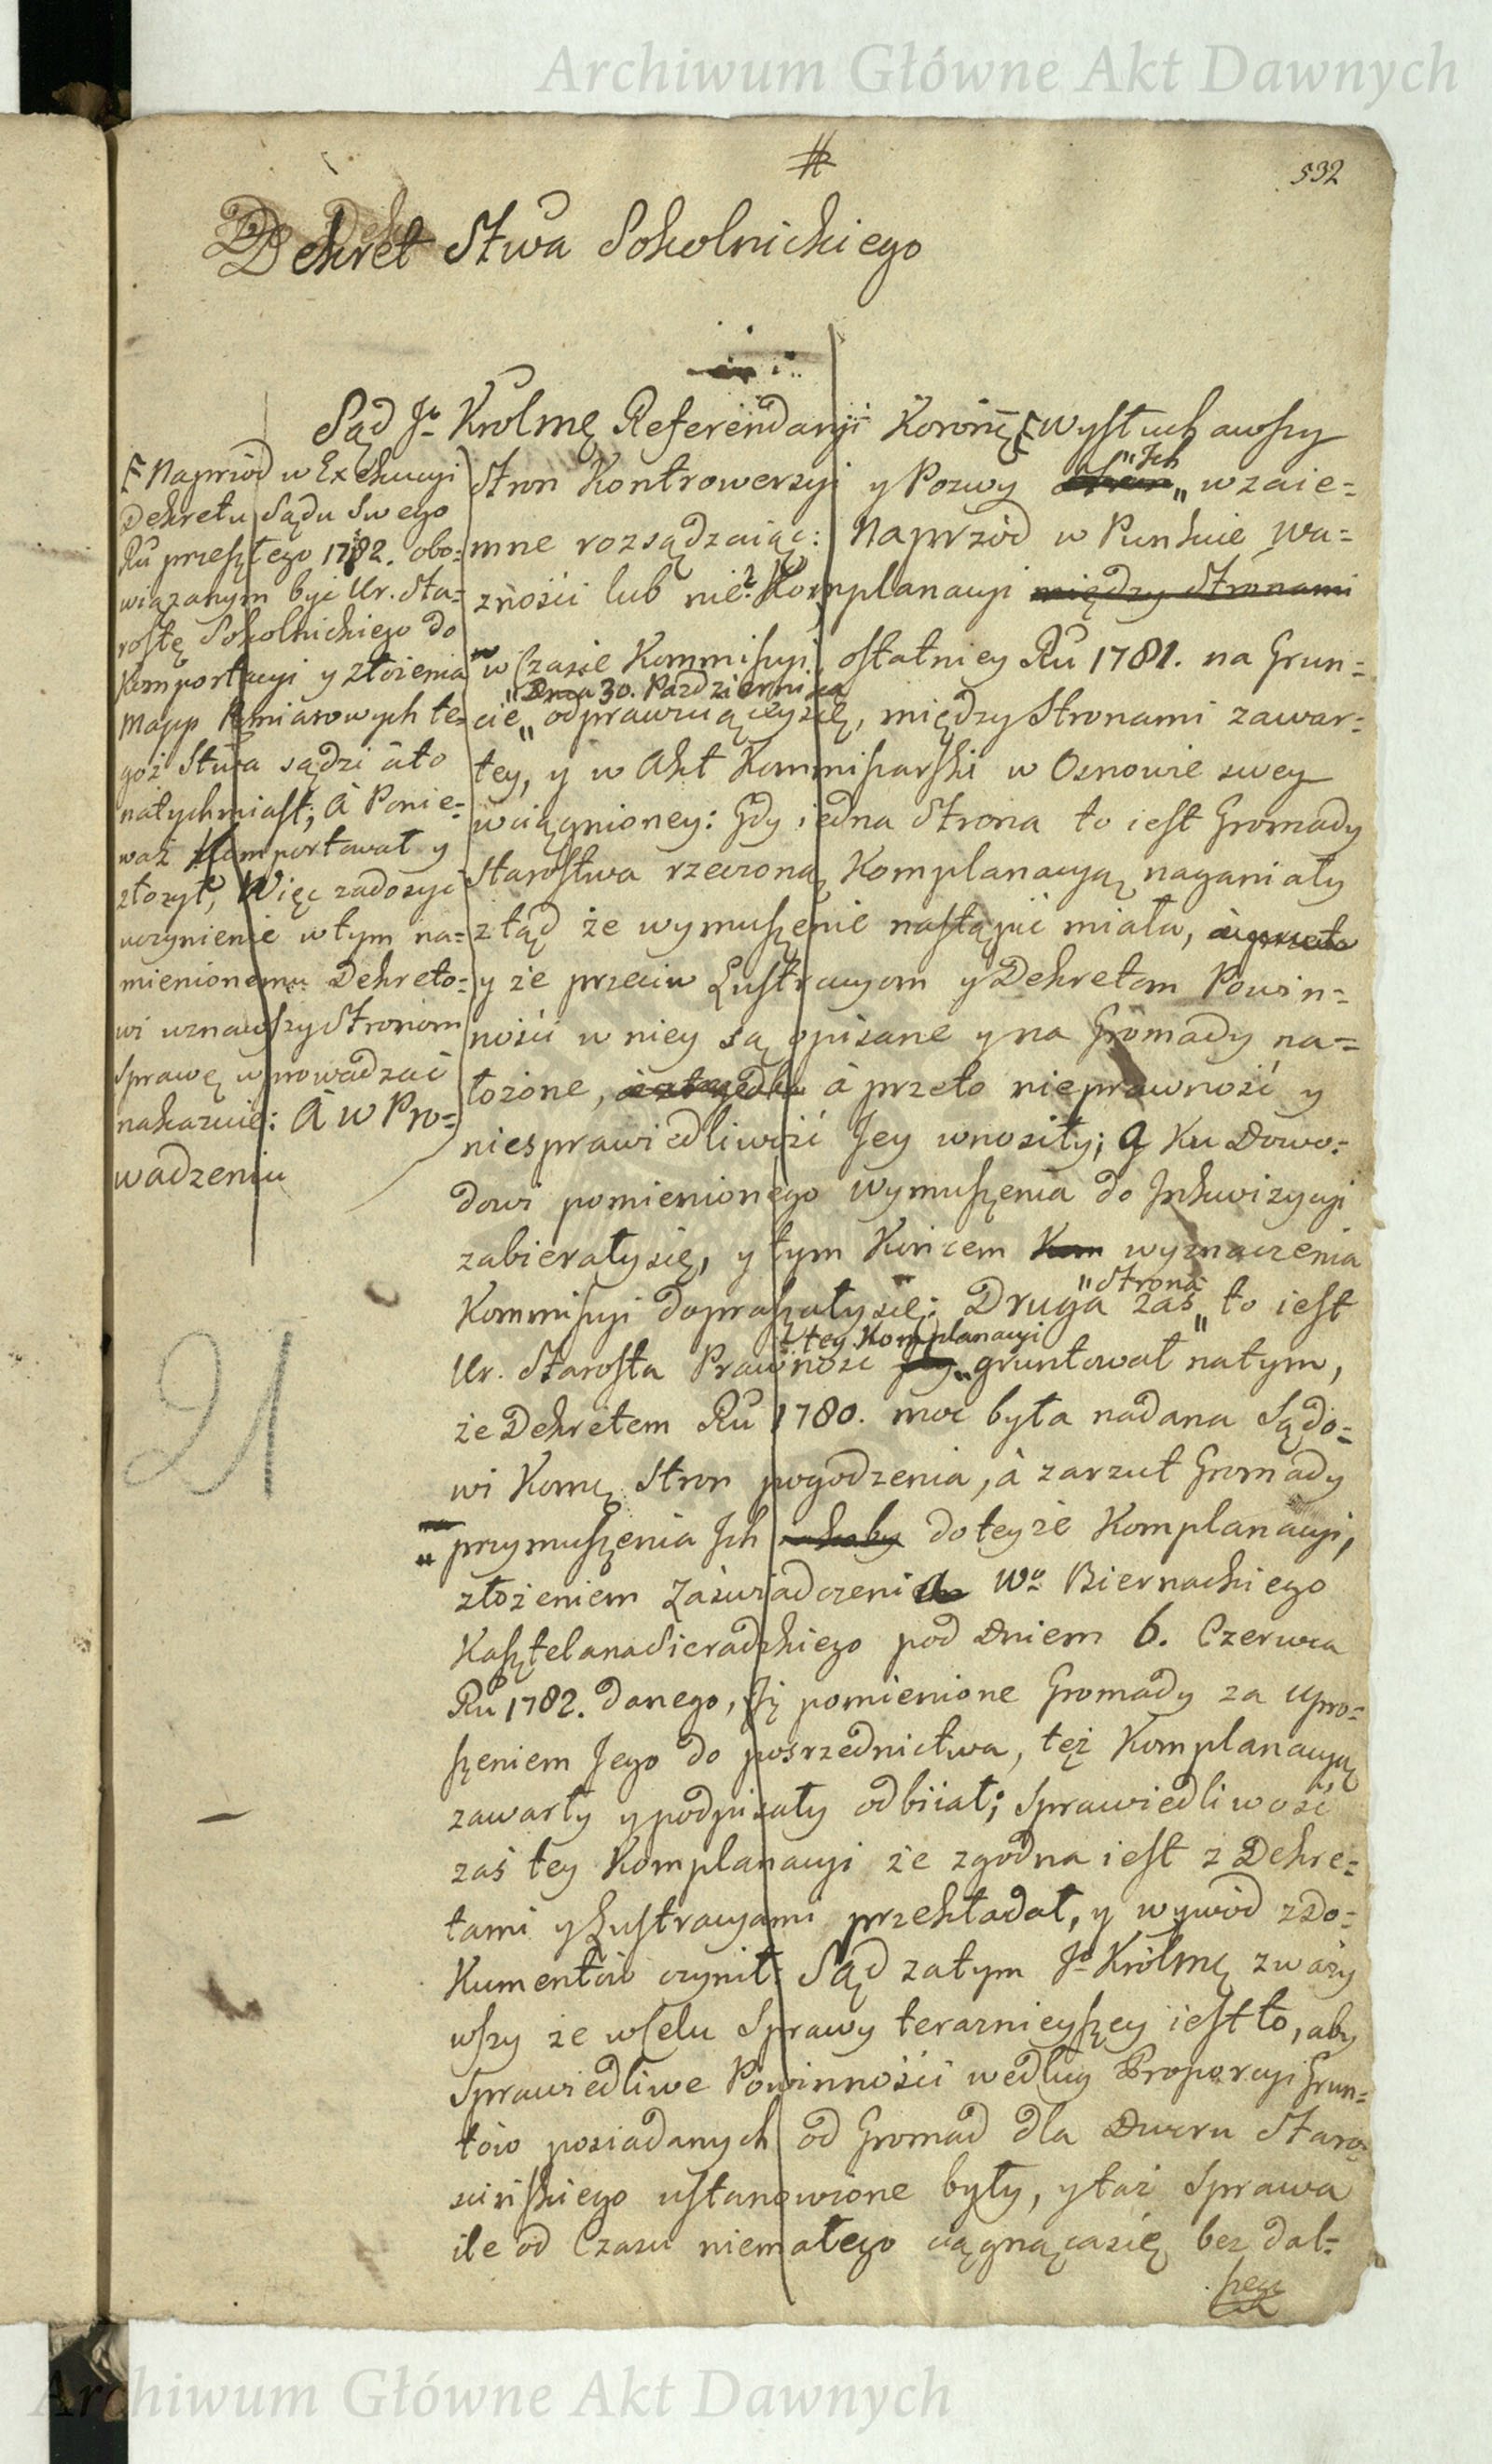 Archiwum Główne Akt Dawnych
#
532
Dekret Stwa Sokolnickiego
Sąd Jo Krolmę Referendaryi Koronę Wysłuchawszy
Stron Kontrowersyi y Pozwy „Ich„ wzaie=
mne rozsądzaiąc: Naprzód w Punkcie Wa=
żnośći lub nie: Komplanacyi między Stronami
w Czasie Kommissyi ostatniey Ru 1781. na Grun=
„Dnia 30. Pazdziernika
cie„ odprawuiącey się, między Stronami zawar=
tey, y w Akt Kommissarski w Osnowie swey
wciągnioney: Gdy iedna Strona to iest Gromady
Starostwa rzeczoną Komplanacyą naganiały
ztąd że wymuszenie nastąpić miała,
y że przeciw Lustracyom y Dekretom Powin=
nośći w niey są opisane y na Gromady na=
łożone, à przeto nieprawność y
niesprawiedliwość Jey wnosiły; a Ku Dowo=
dowi pomienionego Wymuszenia do Inkwizycyi
zabierały się, y tym Końcem Kom wyznaczenia
„Strona
Kommissyi dopraszały się: Druga zaś„ to iest
tey Komplanacyi
Ur. Starosta Prawność Jey„ gruntował na tym,
że Dekretem Ru 1780. moc była nadana Sądo=
wi Komę Stron pogodzenia, à zarzut Gromady
„przymuszenia Ich do teyże Komplanacyi,
złożeniem Zaświadczenia Wo Biernackiego
Kasztelana Sieradzkiego pod Dniem 6. Czerwca
Ru 1782. danego, Iż pomienione Gromady za Upro=
szeniem Jego do pośrzednictwa, też Komplanacyą
zawarły y podpisały odbiiał; Sprawiedliwość
zaś tey Komplanacyi że zgodna iest z Dekre=
tami y Lustracyami przekładał, y wywód z Do=
Kumentów czynił: Sąd zatym Jo Krolmę zważy
wszy że w Celu Sprawy teraznieyszey iest to, aby
Sprawiedliwe Powinnośći według Proporcyi Grun=
tów posiadanych od Gromad dla Dworu Staro=
scińskiego ustanowione były, y taż Sprawa
ile od Czasu niemałego ciągnącasię bez dal=
szego
Naprzód w Exekucyi
Dekretu Sądu Swego
Ru przeszłego 1782. obo=
wiązanym być Ur. Sta=
rostę Sokolnickiego do
Komportacyi y złożenia
Mapp Rozmiarowych te=
goż Stwa sądzi à to
natychmiast; à Ponie=
waż Komportował y
złożył, Więc zadosyć
uczynienie w tym na=
mienionemu Dekreto=
wi uznawszy Stronom
Sprawę wprowadzać
nakazuie: A w Pro=
wadzeniu
21
Archiwum Główne Akt Dawnych